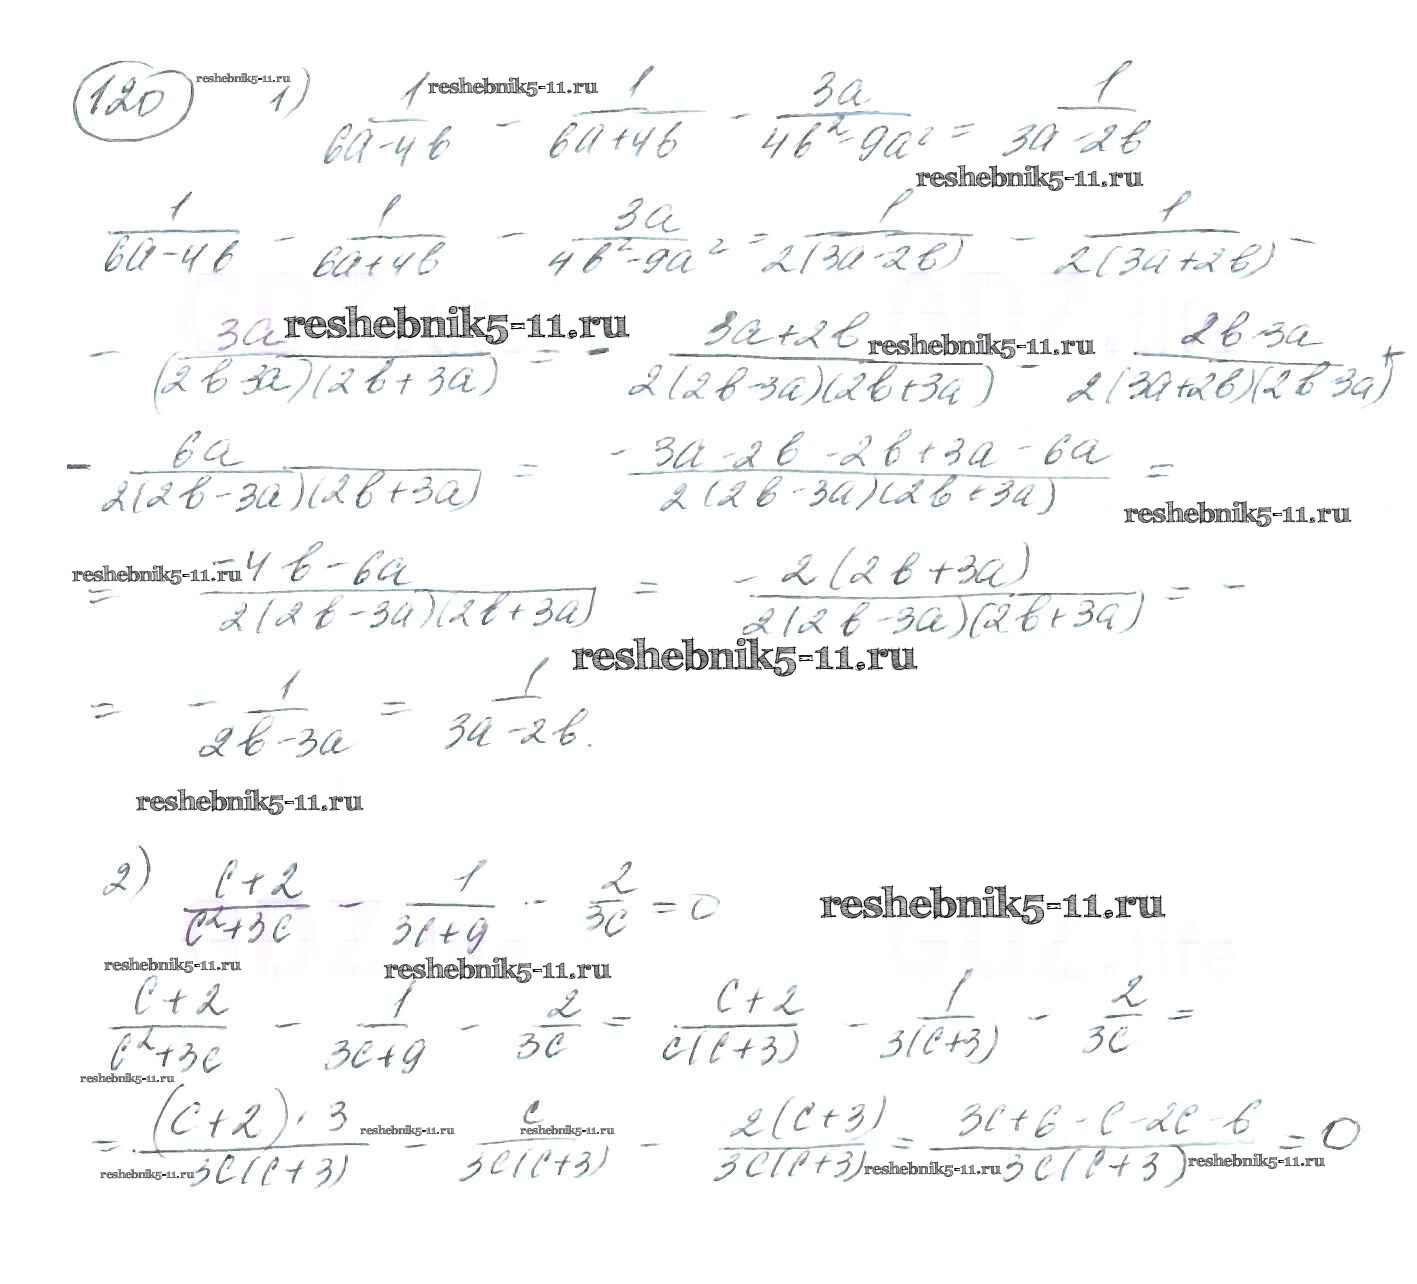 120 reshebnik5-11.ru 1) 1/(6a-4b) reshebnik5-11.ru - 1/(6a+4b) - 3a/(4b²-9a²) = 1/(3a-2b)
reshebnik5-11.ru
1/(6a-4b) - 1/(6a+4b) - 3a/(4b²-9a²) = 1/(2(3a-2b)) - 1/(2(3a+2b)) -
- 3a/((2b-3a)(2b+3a)) reshebnik5-11.ru = - (3a+2b)/(2(2b-3a)(2b+3a)) reshebnik5-11.ru - (2b-3a)/(2(3a+2b)(2b-3a)) +
- 6a/(2(2b-3a)(2b+3a)) = (-3a-2b-2b+3a-6a)/(2(2b-3a)(2b+3a)) =
reshebnik5-11.ru
reshebnik5-11.ru = (-4b-6a)/(2(2b-3a)(2b+3a)) = - 2(2b+3a)/(2(2b-3a)(2b+3a)) = -
reshebnik5-11.ru
= - 1/(2b-3a) = 1/(3a-2b).
reshebnik5-11.ru
2) (c+2)/(c²+3c) - 1/(3c+9) - 2/3c = 0 reshebnik5-11.ru
reshebnik5-11.ru reshebnik5-11.ru
(c+2)/(c²+3c) - 1/(3c+9) - 2/3c = (c+2)/(c(c+3)) - 1/(3(c+3)) - 2/3c =
reshebnik5-11.ru
= (c+2)·3/(3c(c+3)) reshebnik5-11.ru - c/(3c(c+3)) reshebnik5-11.ru - 2(c+3)/(3c(c+3)) = (3c+6-c-2c-6)/(3c(c+3)) = 0
reshebnik5-11.ru reshebnik5-11.ru reshebnik5-11.ru